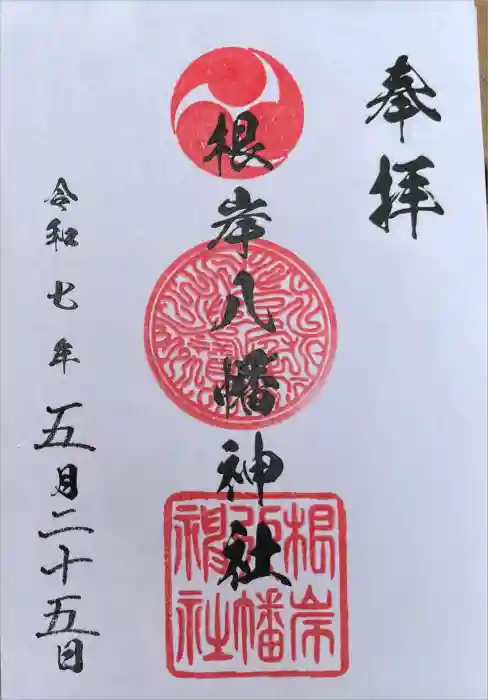 奉拝
根岸八幡神社
根岸
八幡
神社
令和七年五月二十五日